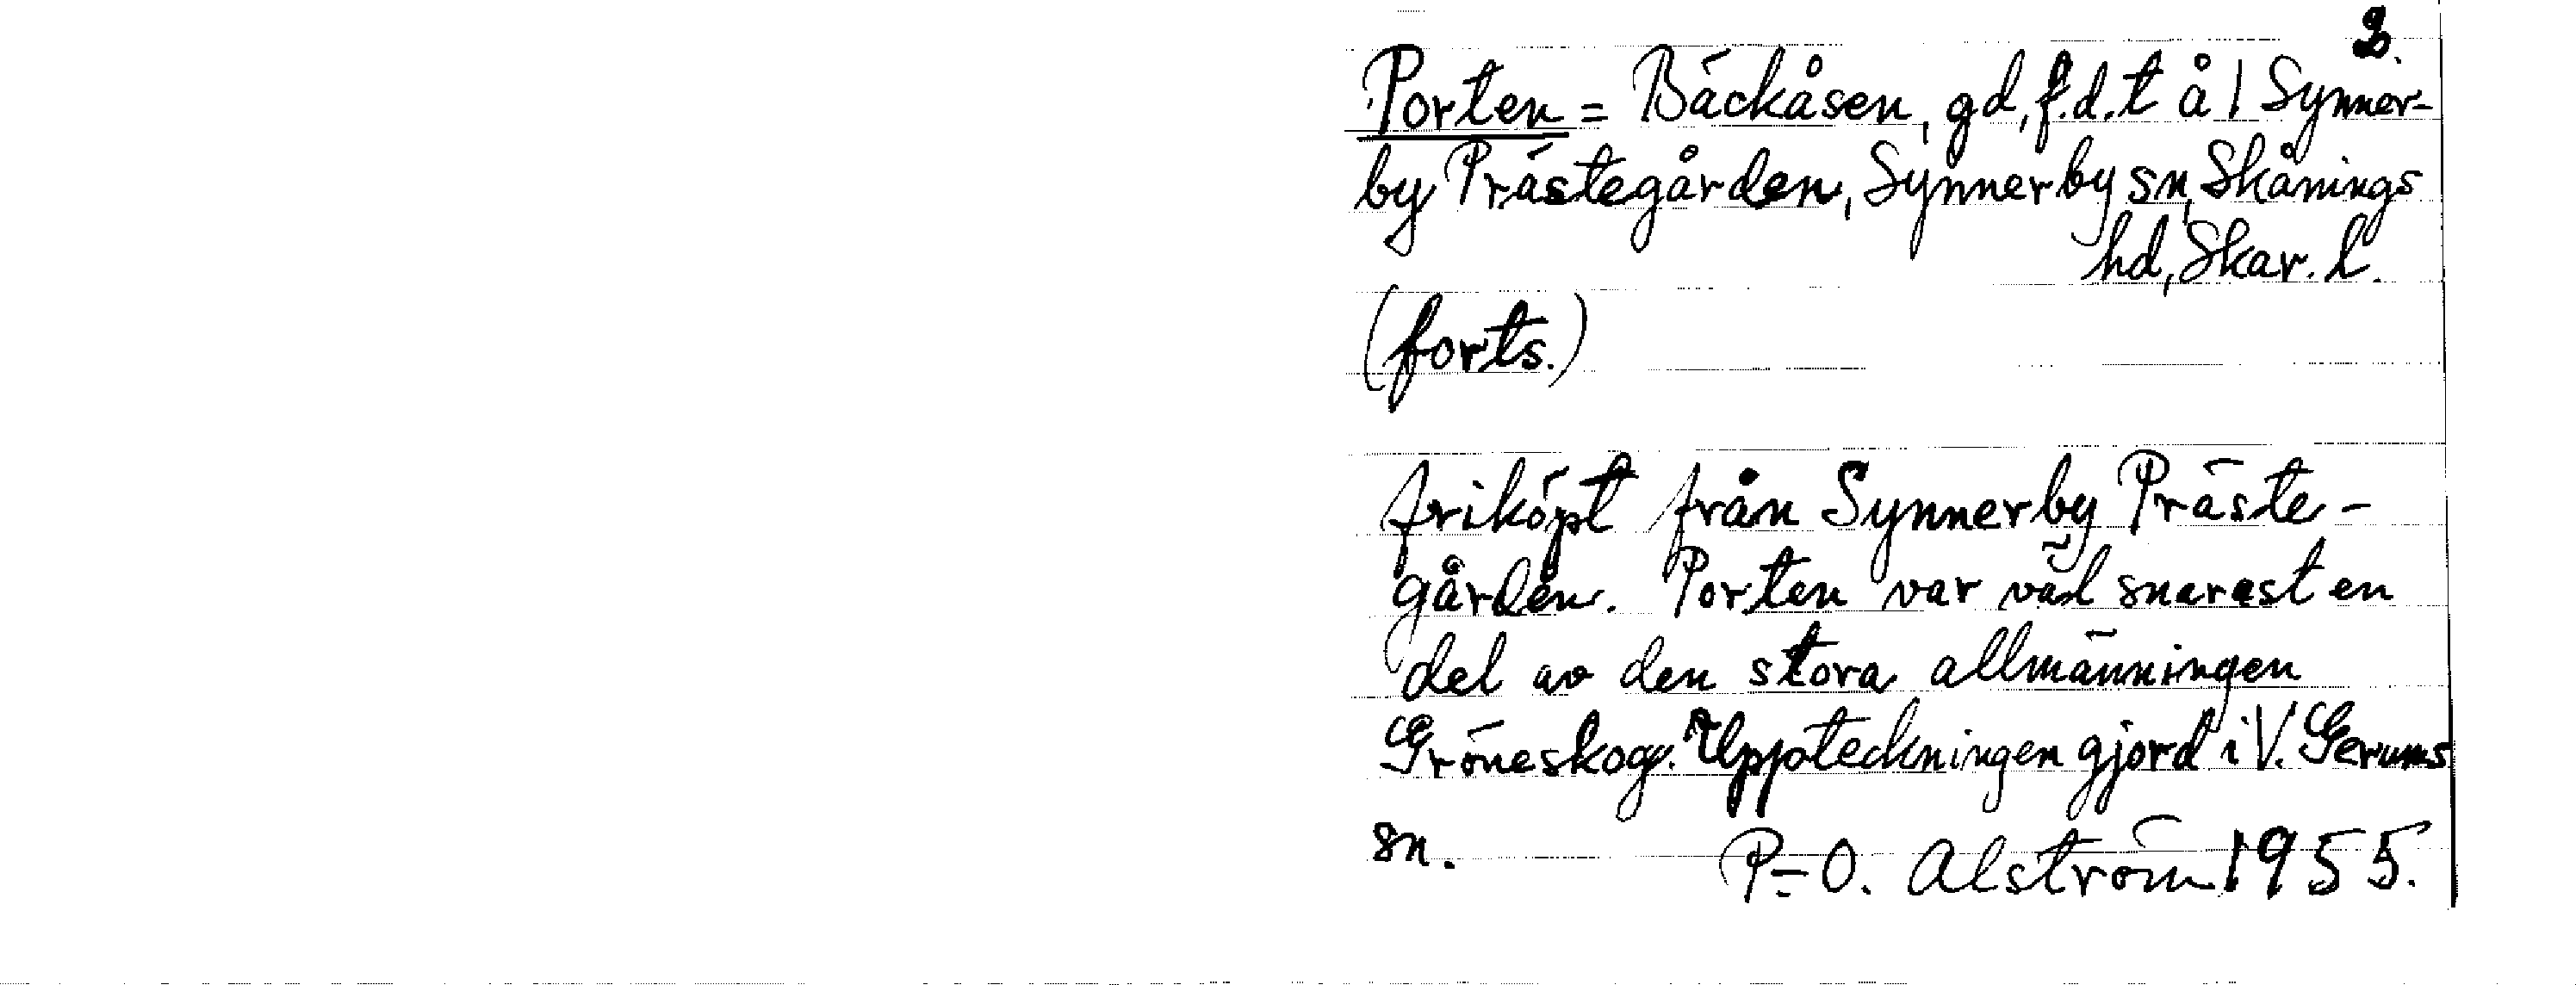 2.
Porten = Bäckåsen, gd, f.d. t å 1 Synner-
by Prästegården, Synnerby sn, Skånings
hd, Skar. l.
(forts.)
friköpt från Synnerby Präste-
gården. Porten var väl snarast en
del av den stora allmänningen
Gröneskog. Uppteckningen gjord i V. Gerums
sn. P.-O. Alström 1955.